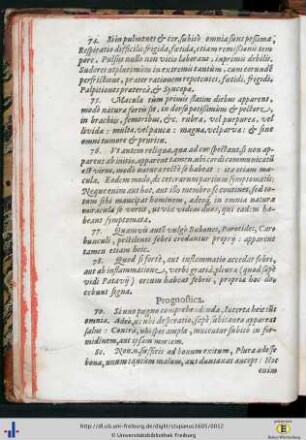 74. Si in pulmones & cor, subitò omnia sunt pessima,
Respiratio difficilis, frigida, fœtida, etiam remissioni tem
pore. Pulsus nullo non vitio laborans, inprimis debilis.
Sudores ut plurimùm in extremis tantùm, cum eorundē
perfrictione, præter rationem repetentes, fœtidi, frigidi,
Palpitationes prætereà, & Syncopa.
75. Maculæ tùm primis statim diebus apparent,
modò natura formis, in dorso potissimùm & pectore,
in brachiis, femoribus, &c. rubræ, vel purpureæ, vel
lividæ: multæ, vel paucæ: magnæ, vel parvæ: & sine
omni tumore & pruritu.
76. Ut autem reliqua, quæ ad cor spectant, si non ap
parent ab initio, apparent tamen, ubi cordi communicatū
est virus, modò natura actio sit habeat: ita etiam macu
læ. Eodem modo, & cæterarum partium symptomatis:
Neque enim aut hoc, aut illo membro se continet, sed to
tum sibi mancipat hominem, adeoq; in omnia natura
miracula se vertit, ut vix videas duos, qui eadem ha
beant symptomata.
77. Quamvis autē vulgò Bubones, Parotides, Car
bunculi, pestilentis febris credantur proprij: apparent
tamen etiam hoc.
78. Quod si fortè, aut inflammatio accedat febri,
aut ab inflammatione, verbi gratiâ, pleuræ (quod sæpè
vidi Patavij) ortum habeat febris, propria hoc do
cebunt signa.
Prognostica.
79. Si uno pugno comprehendenda, Incerta heic sūt
omnia. Adeò, ut ubi desperatio, sæpè subitanea appareat
salus: Contrà, ubi spes ampla, mutetur subitò in for
midinem, aut ipsam mortem.
80. Non sufficit ad bonum exitum, Plura adesse
bona, unum tantùm malum, aut duntaxat anceps: Hoc
enim
http://dl.ub.uni-freiburg.de/diglit/stupanus1605/0012
© Universitätsbibliothek Freiburg